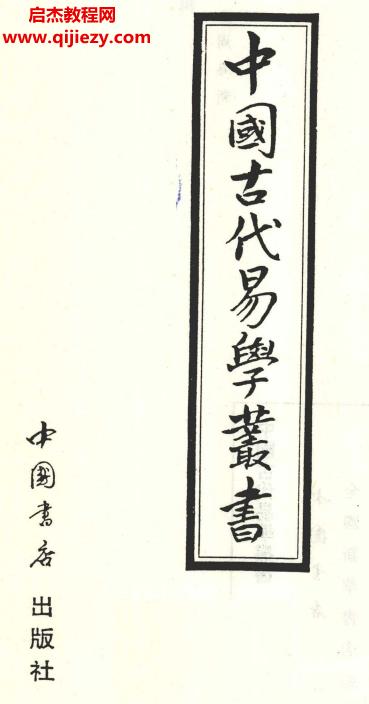 启杰教程网
www.qijiezy.com
中國古代易學叢書
中國书店出版社